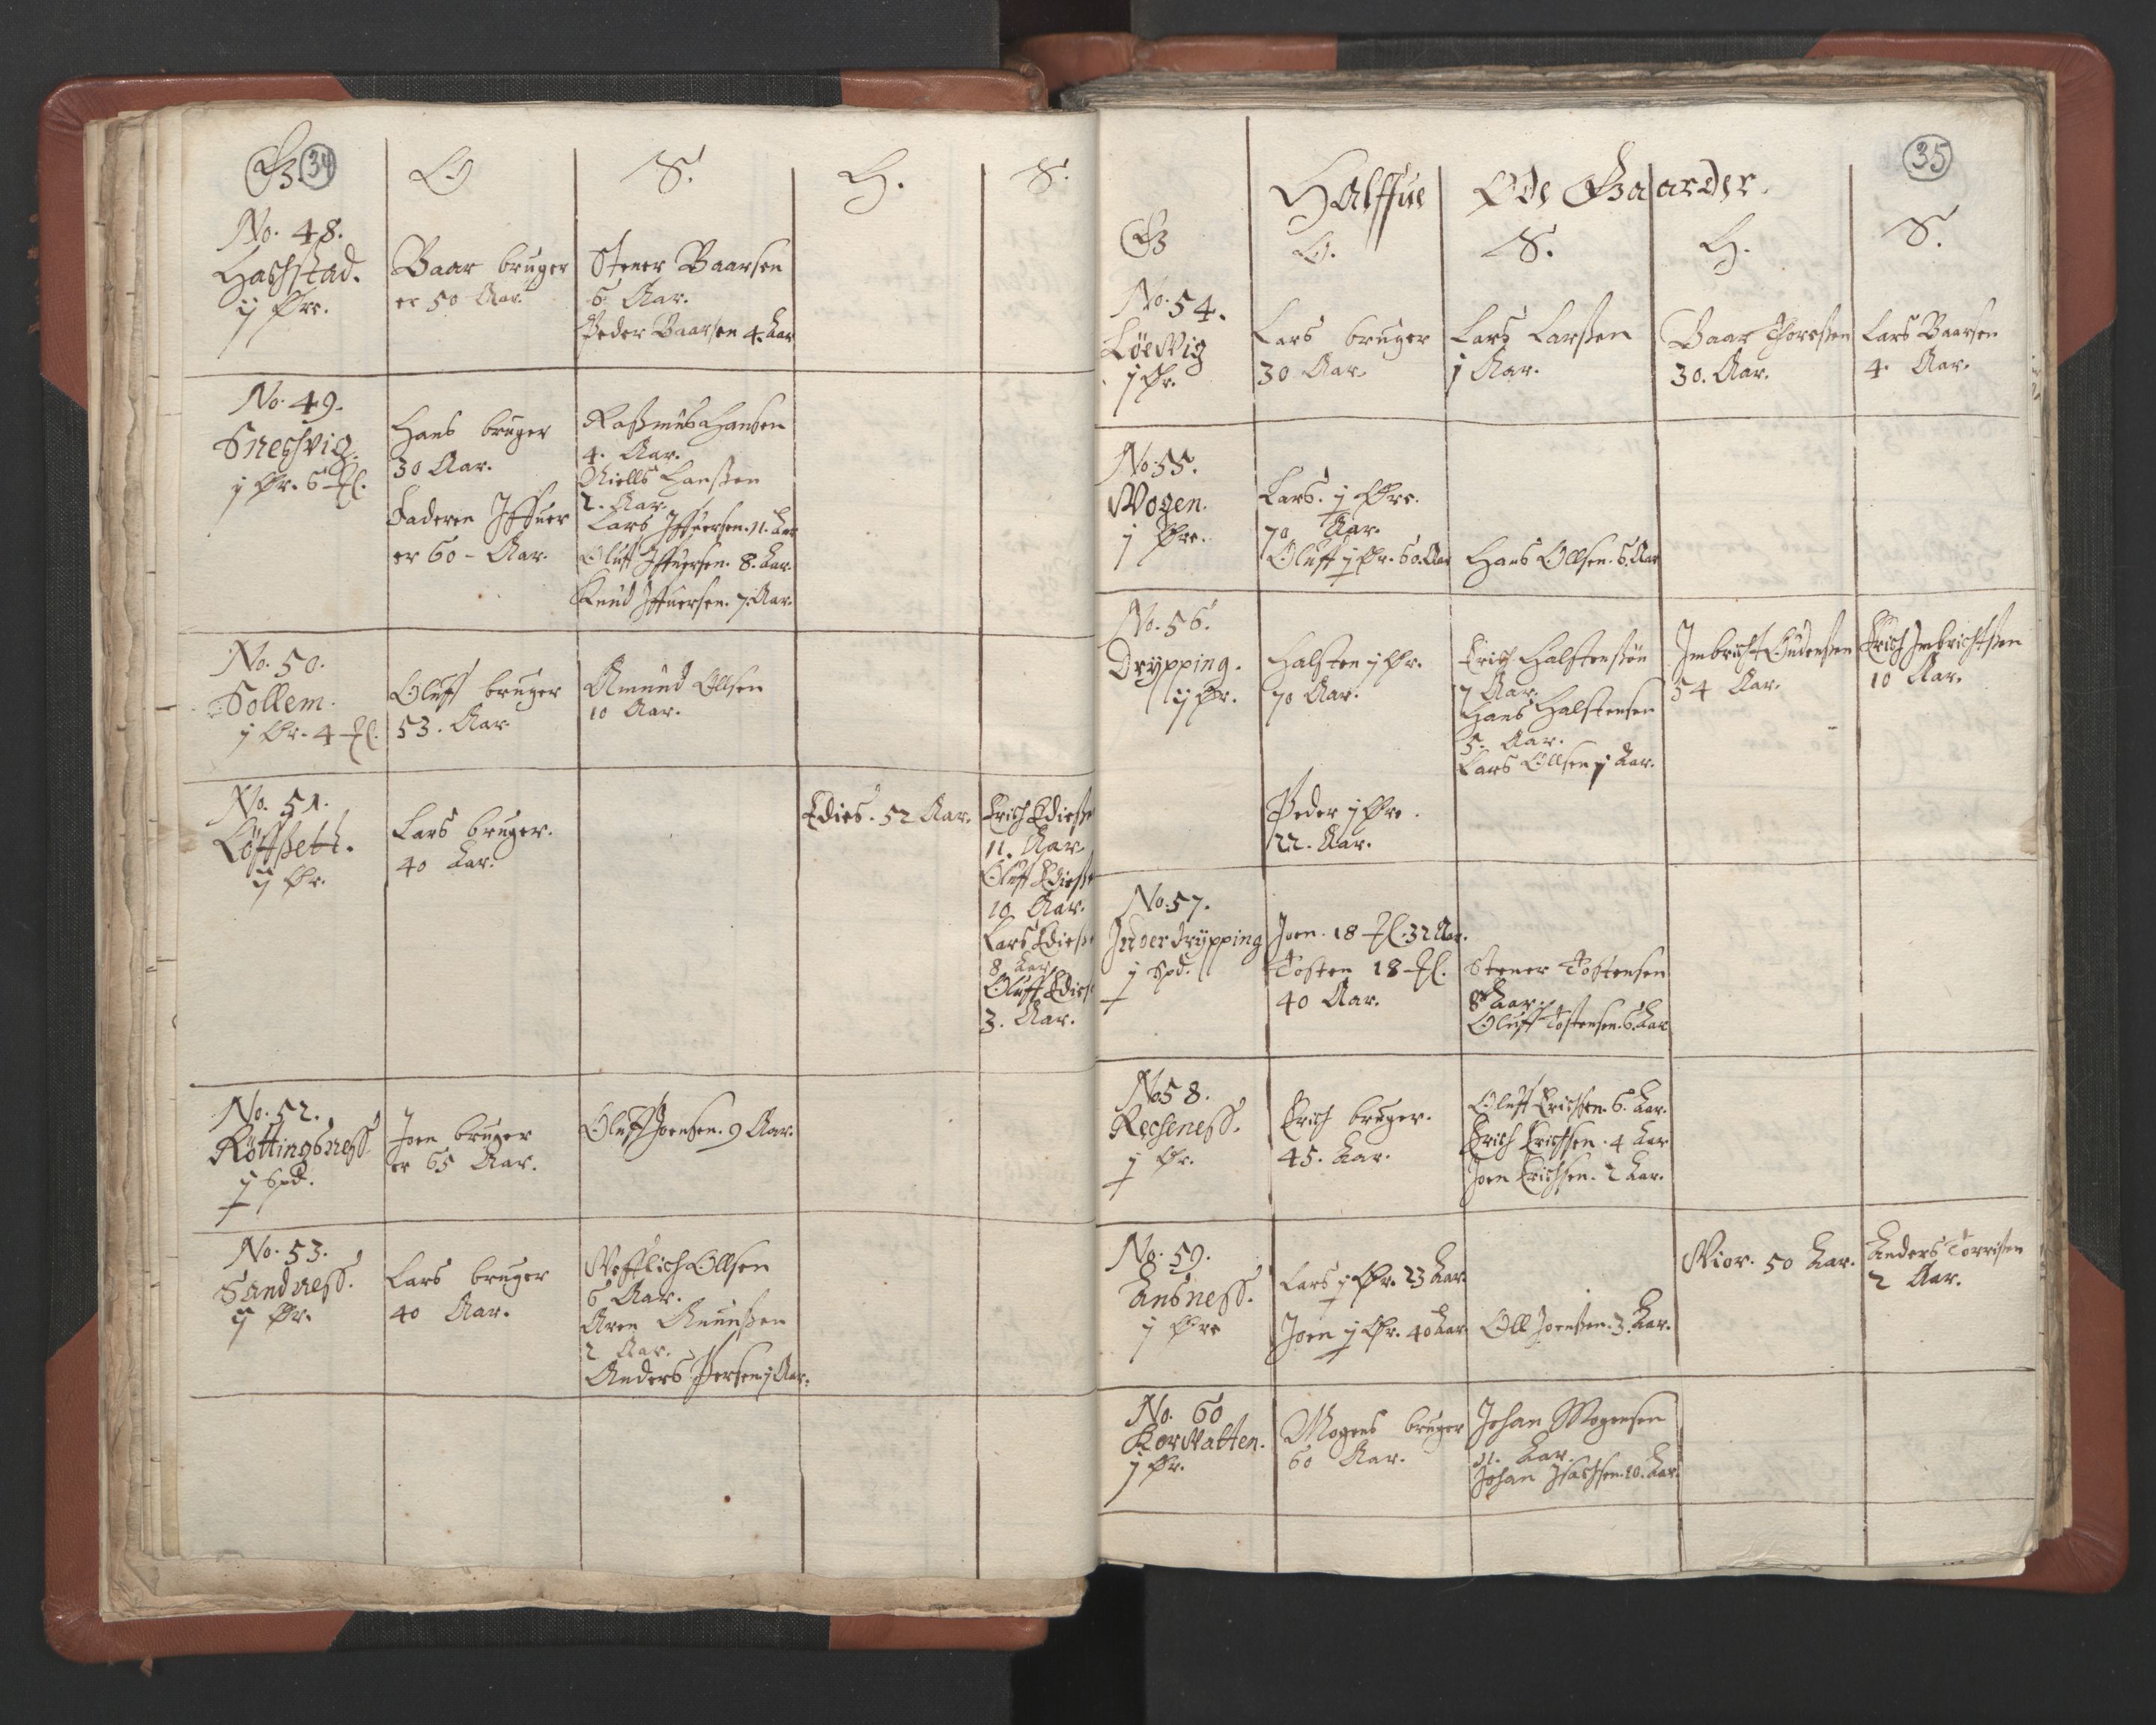 G. 34
O
S.
H.
S.
No. 48.
Haschstad.
ij Øre.
Baar bruger
er 50 Aar.
Stener Baarsen
6. Aar.
Peder Baarsen 4. Aar
No. 49.
Sneschvig.
j Ør. 6
Hans bruger
30 Aar.
Faderen Iffuer
er 60 - Aar.
Rassmus Hansen
4. Aar.
Niells Hanssen
2. Aar.
Lars Iffuersen. 11. Aar
Oluff Iffuersen. 8. Aar.
Knud Iffuersen. 7. Aar.
No. 50.
Sollem.
j Ør. 4
Oluff bruger
53. Aar
Amund Ollsen
10 Aar.
No. 51.
Løffsett.
ij Ør.
Lars bruger.
40 Aar.
Edies. 52 Aar.
Erich Ediess
11. Aar
Oluff Ediess
10 Aar.
Lars Ediess
8 Aar
Oluff Edies
3. Aar.
No. 52.
Røttingsness
j Spd.
Joen bruger
er 65 Aar.
Oluff Joensen. 9 Aar.
No. 53.
Sandness.
ij Ør.
Lars bruger
40 Aar.
Ollsen
6 Aar.
Aren
2 Aar.
Anders Persen j Aar.
35
Halffue Øde Gaarder.
G
O.
S.
H.
S.
No. 54.
Løevig
j Ør.
Lars bruger
30 Aar
Lars Larssen
j Aar.
Baar Thoressen
30. Aar.
Lars Baarsen
4. Aar.
No. 55.
Wogen.
j Øre.
Lars. j Øre.
70 Aar.
Oluff j Ør. 60. Aar
Hans Ollsen. 6. Aar
No. 56.
Drypping.
ij Ør.
Halsten j Ør.
70 Aar.
Erich Halstenssøn
7 Aar.
Hans Halstensen
5. Aar.
Lars Ollsen j Aar.
Imbricht Gudenssen
54 Aar.
Erich Imbrichtssen
10 Aar.
Peder j Øre.
22. Aar.
No. 57.
Inderdrypping
j Spd.
Joen. 18 32 Aar.
Tosten 18
40 Aar.
Stener Tostensen
8 Aar.
Oluff Tostensen. 6. Aar
No 58.
Recheness.
j Ør.
Erich bruger.
45. Aar.
Oluff Erichsen. 6. Aar.
Erich Erichsen. 4 Aar
Joen Erichsen. 2 Aar.
No. 59.
Ansness.
j Øre
Lars j Ør. 23 Aar
Joen j Ør. 40 Aar
Oll Joenssen. 3. Aar.
50 Aar.
Anders Torrissen
2 Aar.
No. 60
Korsvatten.
j Ør.
Mogens bruger
60 Aar.
Johan Mogensen
11. Aar.
Johan Isachsen. 10. Aar.